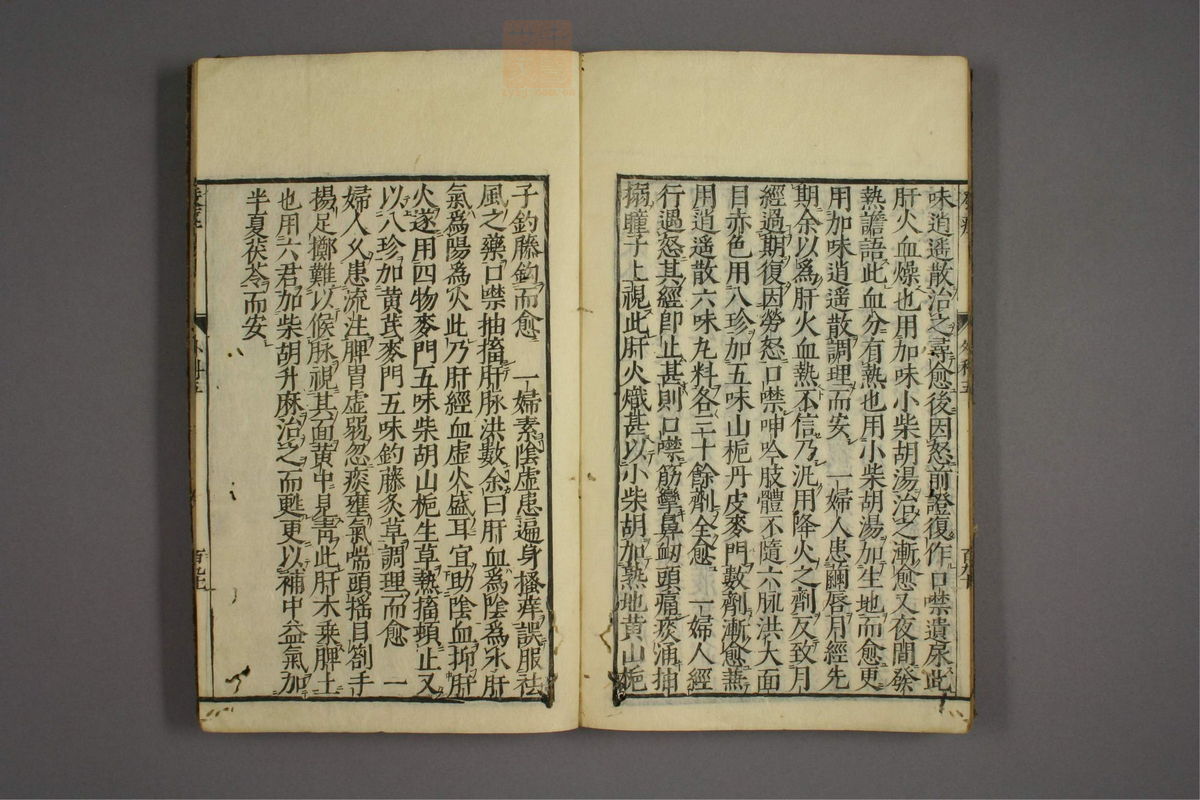 味逍遙散治之尋愈後因怒前證復作口噤遺尿此
肝火血燥也用加味小柴胡湯治之漸愈又夜間發
熱譫語此血分有熱也用小柴胡湯加生地而愈更
用加味逍遙散調理而安 一婦人患繭唇月經先
期余以爲肝火血熱不信乃汎用降火之劑反致月
經過期復因勞怒口噤呻吟肢體不隨六脉洪大面
目赤色用八珍加五味山梔丹皮麥門數劑漸愈兼
用逍遙散六味丸料各三十餘劑全愈 一婦人經
行遇怒其經卽止甚則口噤筋攣鼻衂頭痛痰涌抽
搦瞳子上視此肝火熾甚以小柴胡加熟地黃山梔
子釣藤鈎而愈 一婦素陰虛患遍身搔痒誤服祛
風之藥口噤抽搐肝脉洪數余曰肝血爲陰爲水肝
氣爲陽爲火此乃肝經血虛火盛耳宜助陰血抑肝
火遂用四物麥門五味柴胡山梔生草熱搐頓止又
以八珍加黃芪麥門五味釣藤炙草調理而愈 一
婦人久患流注脾胃虛弱忽痰壅氣喘頭搖目劄手
揚足擲難以候脉視其面黃中見靑此肝木乘脾土
也用六君加柴胡升麻治之而甦更以補中益氣加
半夏茯苓而安
外科五